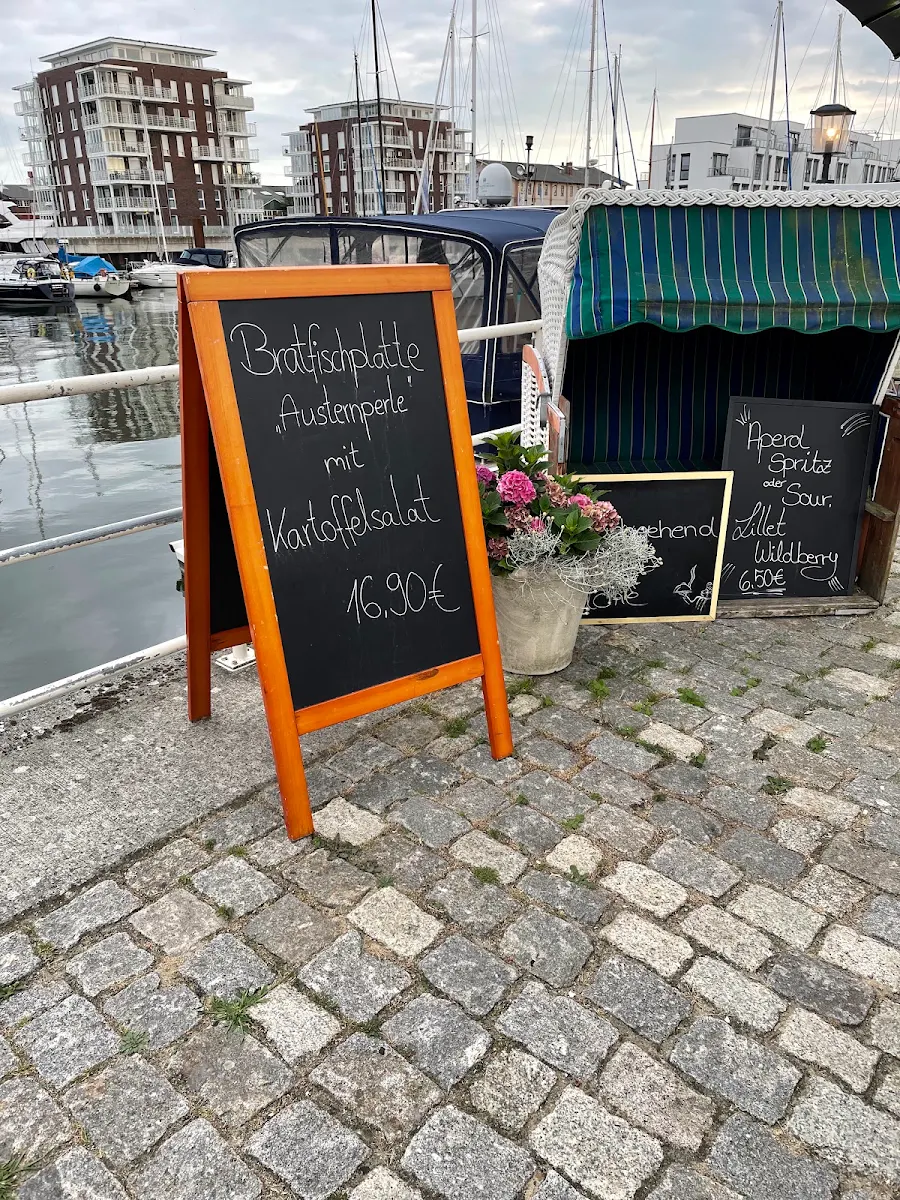 Bratfischplatte
„Austernperle"
mit
Kartoffelsalat
16,90€
Aperol
Spritz
oder
Sour,
Lillet
Wildberry
6.50€